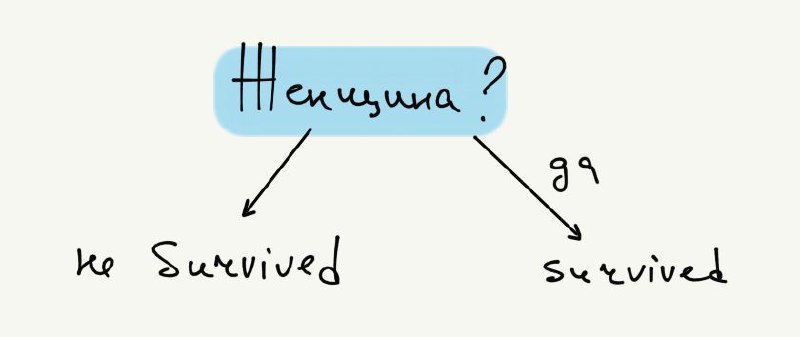 Женщина?
да
не Survived
survived